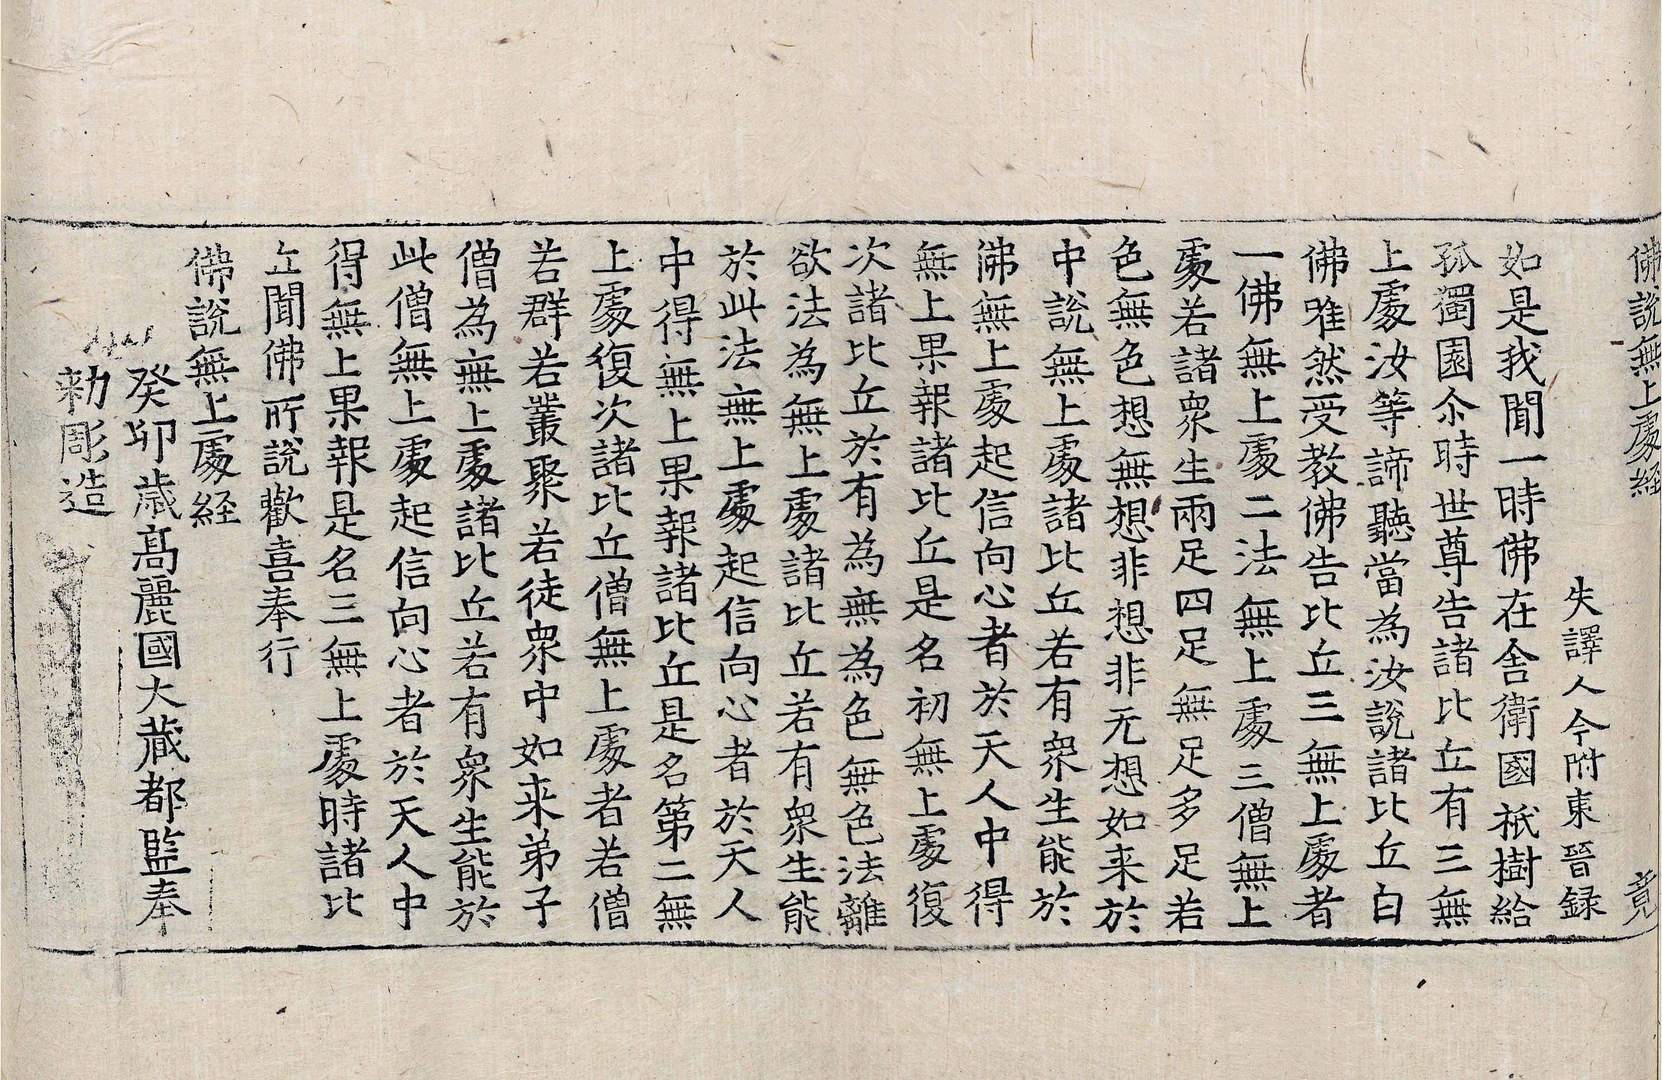 佛說無上處経 竟
失譯人今附東晉録
如是我聞一時佛在舍衛國祇樹給
孤獨園尒時世尊告諸比丘有三無
上處汝等諦聽當為汝說諸比丘白
佛唯然受教佛告比丘三無上處者
一佛無上處二法無上處三僧無上
處若諸衆生兩足四足無足多足若
色無色想無想非想非无想如来於
中說無上處諸比丘若有衆生能於
佛無上處起信向心者於天人中得
無上果報諸比丘是名初無上處復
次諸比丘於有為無為色無色法離
欲法為無上處諸比丘若有衆生能
於此法無上處起信向心者於天人
中得無上果報諸比丘是名第二無
上處復次諸比丘僧無上處者若僧
若群若叢聚若徒衆中如来弟子
僧為無上處諸比丘若有衆生能於
此僧無上處起信向心者於天人中
得無上果報是名三無上處時諸比
丘聞佛所說歡喜奉行
佛說無上處経
癸卯歲髙麗國大藏都監奉
勑彫造